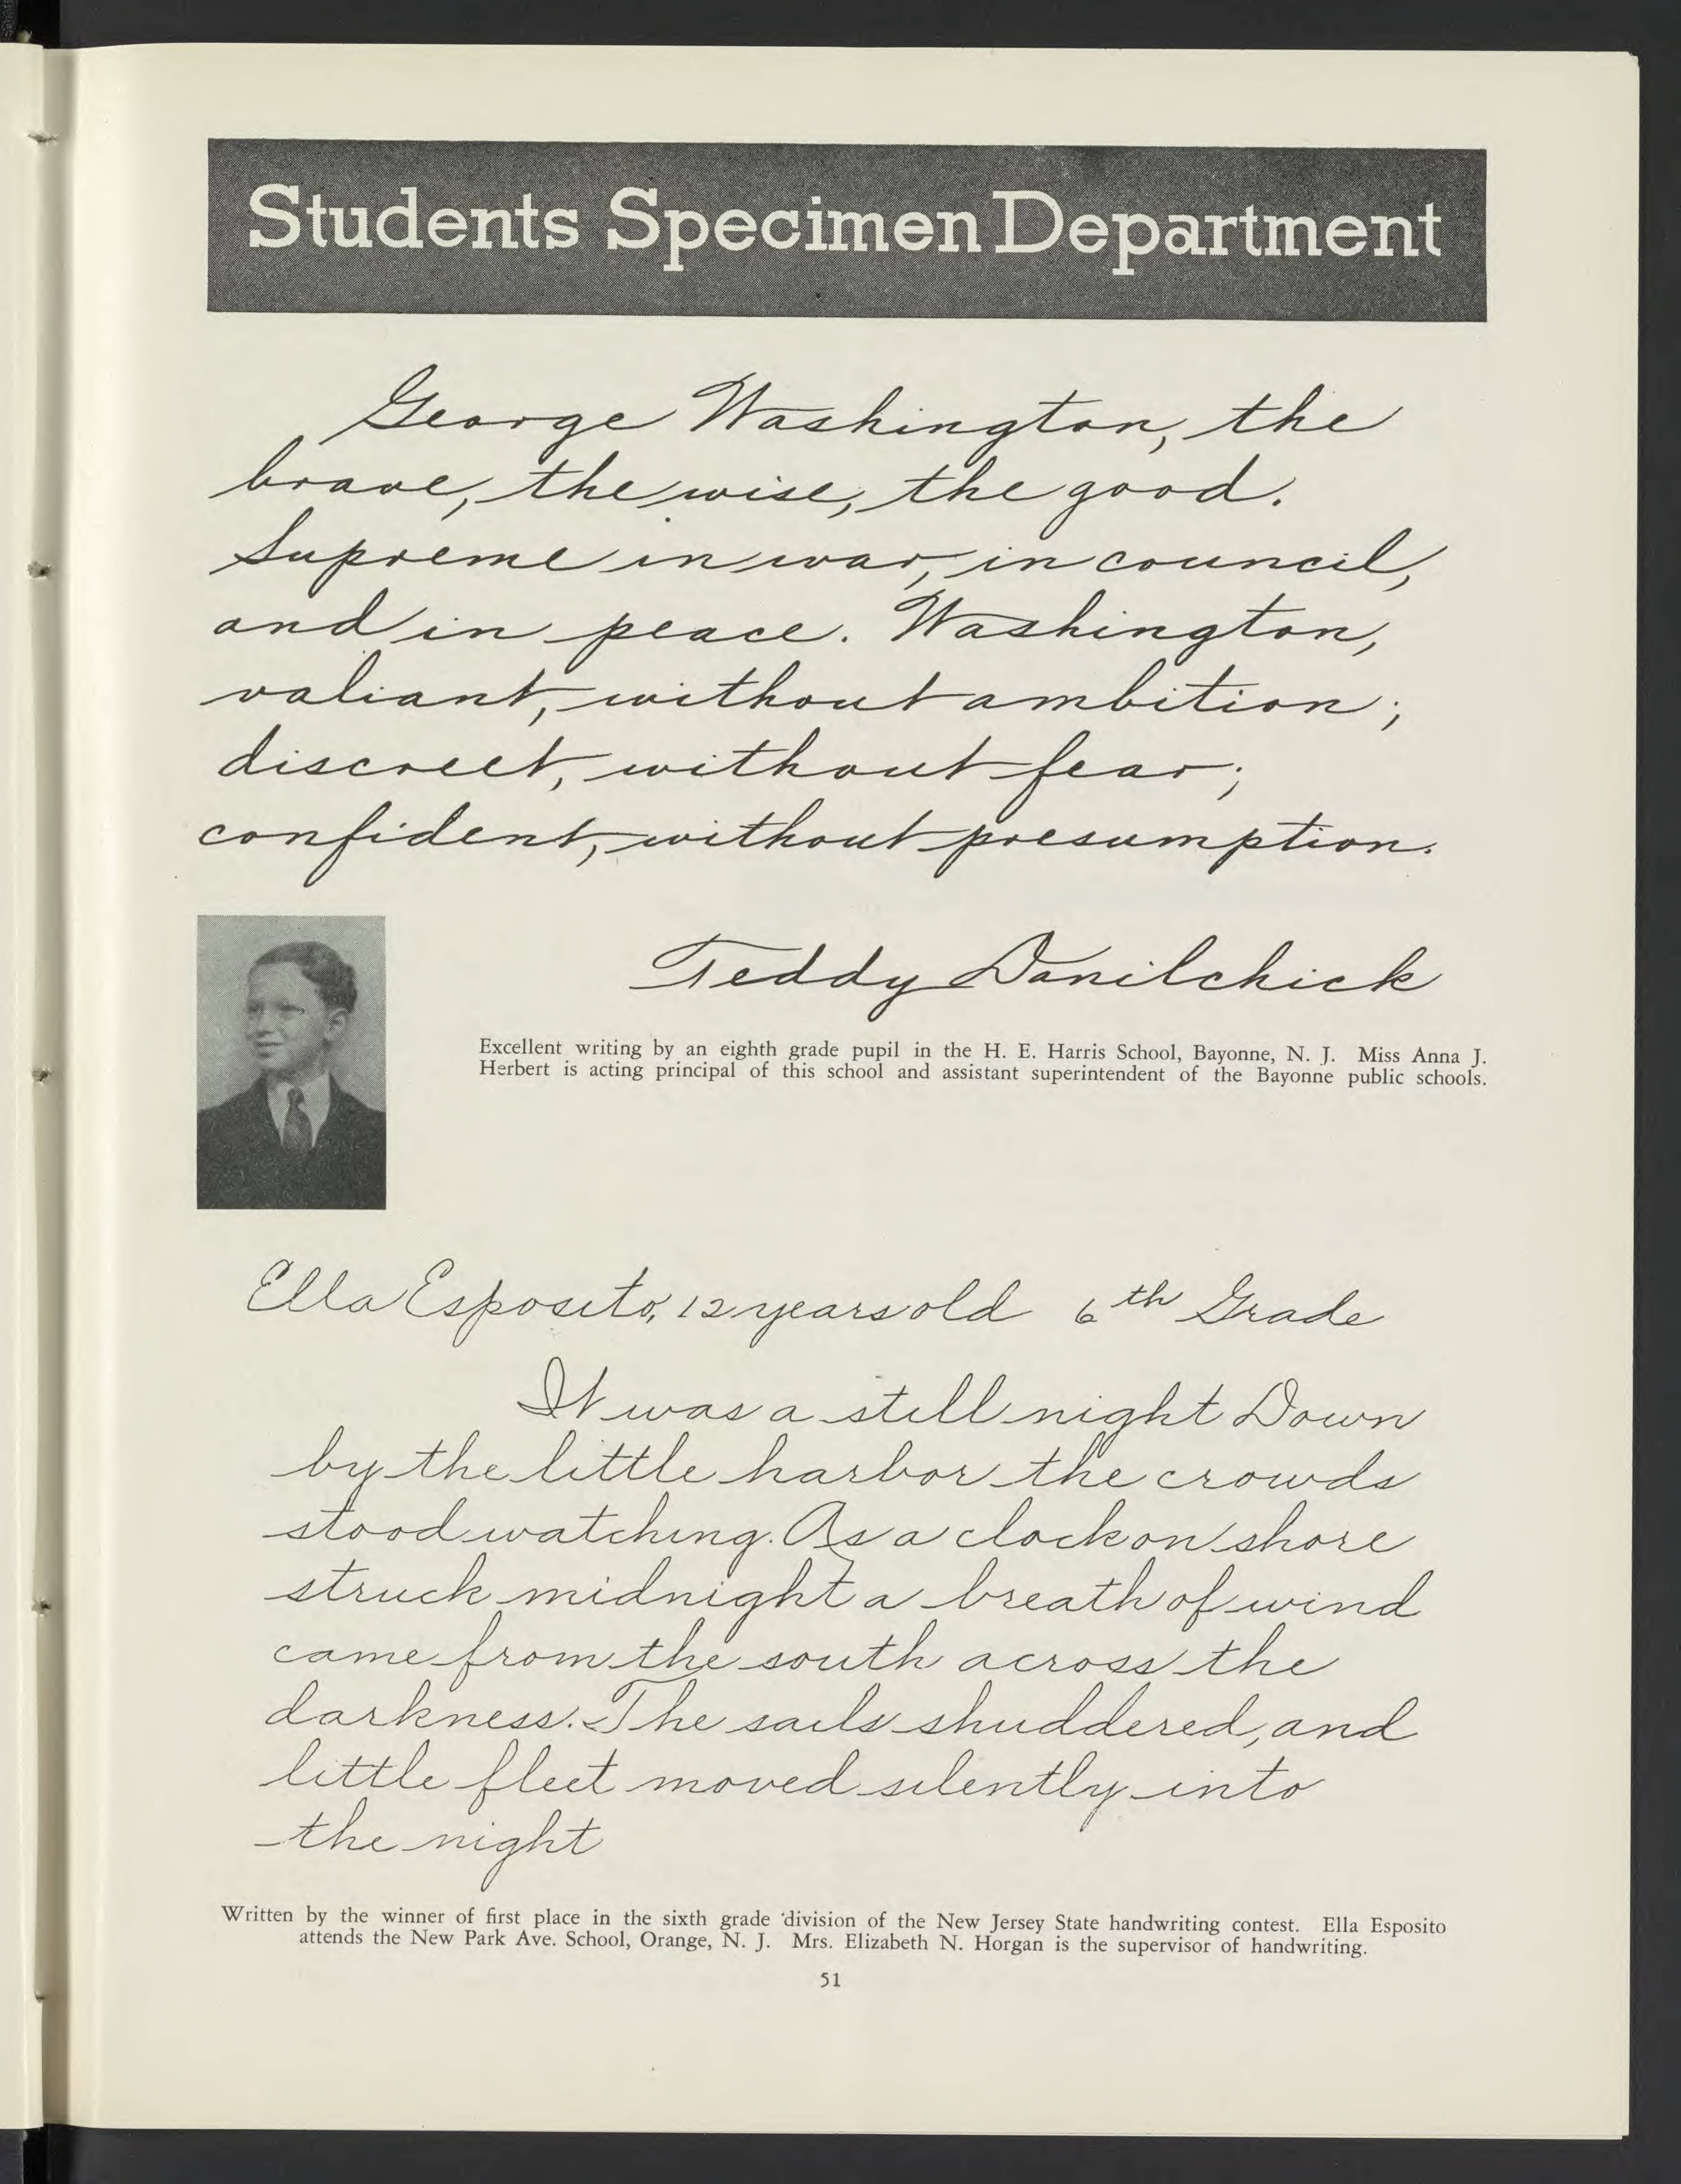 Students Specimen Department
George Washington, the
brave, the wise, the good.
Supreme in war, in council,
and in peace. Washington,
valiant, without ambition;
discreet, without fear;
confident, without presumption.
Teddy Danilchick
Excellent writing by an eighth grade pupil in the H. E. Harris School, Bayonne, N. J. Miss Anna J.
Herbert is acting principal of this school and assistant superintendent of the Bayonne public schools.
Ella Esposito, 12 years old 6th Grade
It was a still night Down
by the little harbor the crowds
stood watching. As a clock on shore
struck midnight a breath of wind
came from the south across the
darkness. The sails shuddered, and
little fleet moved silently into
the night
Written by the winner of first place in the sixth grade division of the New Jersey State handwriting contest. Ella Esposito
attends the New Park Ave. School, Orange, N. J. Mrs. Elizabeth N. Horgan is the supervisor of handwriting.
51